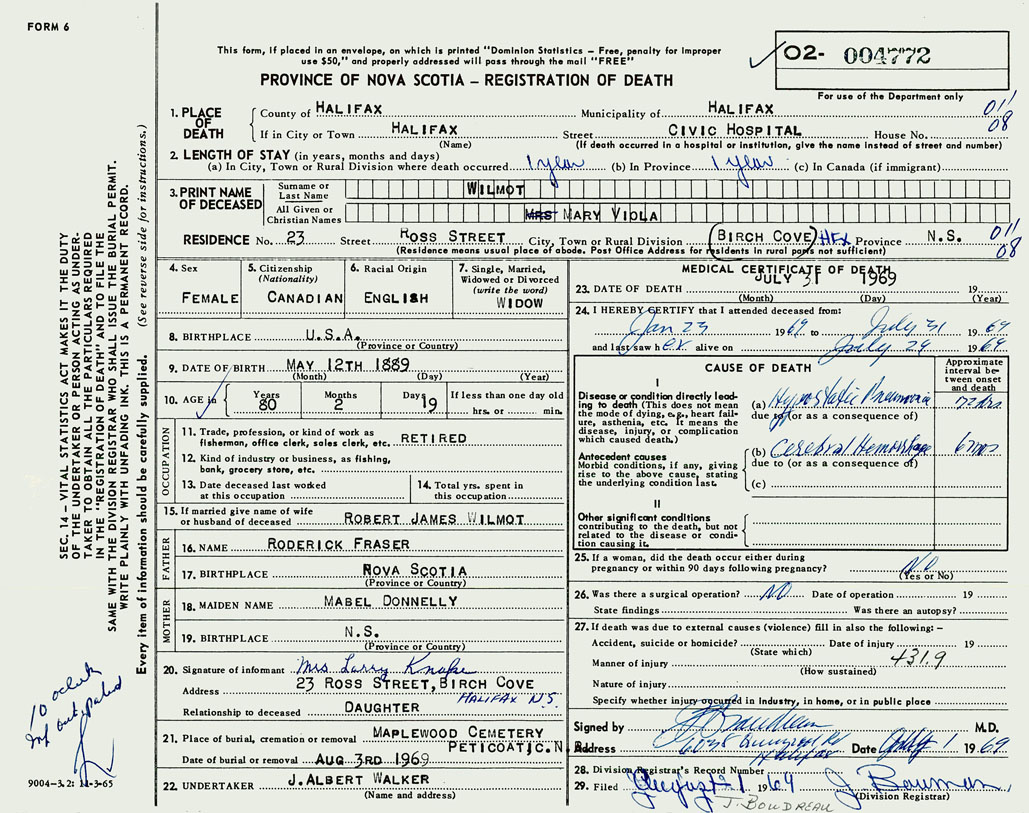 FORM 6
This form, if placed in an envelope, on which is printed "Dominion Statistics – Free, penalty for improper
use $50," and properly addressed will pass through the mail "FREE"
PROVINCE OF NOVA SCOTIA – REGISTRATION OF DEATH
02- 004772
For use of the Department only
SEC. 14 – VITAL STATISTICS ACT MAKES IT THE DUTY
OF THE UNDERTAKER OR PERSON ACTING AS UNDER-
TAKER TO OBTAIN ALL THE PARTICULARS REQUIRED
IN THE "REGISTRATION OF DEATH" AND TO FILE THE
SAME WITH THE DIVISION REGISTRAR WHO SHALL ISSUE THE BURIAL PERMIT.
WRITE PLAINLY WITH UNFADING INK. THIS IS A PERMANENT RECORD.
Every item of information should be carefully supplied. (See reverse side for instructions.)
1. PLACE OF DEATH
County of HALIFAX Municipality of HALIFAX 011
If in City or Town HALIFAX Street CIVIC HOSPITAL House No. 08
(Name) (If death occurred in a hospital or institution, give the name instead of street and number)
2. LENGTH OF STAY (in years, months and days)
(a) In City, Town or Rural Division where death occurred 1 year (b) In Province 1 year (c) In Canada (if immigrant)
3. PRINT NAME OF DECEASED
Surname or Last Name WILMOT
All Given or Christian Names MRS MARY VIOLA
RESIDENCE No. 23 Street ROSS STREET City, Town or Rural Division BIRCH COVE HFX Province N.S. 011
(Residence means usual place of abode. Post Office Address for residents in rural parts not sufficient) 08
4. Sex FEMALE
5. Citizenship (Nationality) CANADIAN
6. Racial Origin ENGLISH
7. Single, Married, Widowed or Divorced (write the word) WIDOW
8. BIRTHPLACE U.S.A.
(Province or Country)
9. DATE OF BIRTH MAY 12TH 1889
(Month) (Day) (Year)
10. AGE in Years 80 Months 2 Days 19 If less than one day old
hrs. or min.
OCCUPATION
11. Trade, profession, or kind of work as
fisherman, office clerk, sales clerk, etc. RETIRED
12. Kind of industry or business, as fishing,
bank, grocery store, etc.
13. Date deceased last worked
at this occupation
14. Total yrs. spent in
this occupation
15. If married give name of wife
or husband of deceased ROBERT JAMES WILMOT
FATHER
16. NAME RODERICK FRASER
17. BIRTHPLACE NOVA SCOTIA
(Province or Country)
MOTHER
18. MAIDEN NAME MABEL DONNELLY
19. BIRTHPLACE N.S.
(Province or Country)
20. Signature of informant Mrs Larry
Address 23 ROSS STREET, BIRCH COVE
HALIFAX N.S.
Relationship to deceased DAUGHTER
21. Place of burial, cremation or removal MAPLEWOOD CEMETERY
PETICOATIC. N.B.
Date of burial or removal AUG 3RD 1969
22. UNDERTAKER J. ALBERT WALKER
(Name and address)
10 oclock
9004-3.2: 11-3-65
MEDICAL CERTIFICATE OF DEATH
23. DATE OF DEATH JULY 31 1969 19
(Month) (Day) (Year)
24. I HEREBY CERTIFY that I attended deceased from:
Jan 23 1969 to July 31 1969
and last saw her alive on July 29 1969
CAUSE OF DEATH
Approximate interval between onset and death
I
Disease or condition directly lead-
ing to death (This does not mean
the mode of dying, e.g., heart fail-
ure, asthenia, etc. It means the
disease, injury, or complication
which caused death.)
(a) Hypostatic Pneumonia 72 hrs
due to (or as a consequence of)
Antecedent causes
Morbid conditions, if any, giving
rise to the above cause, stating
the underlying condition last.
(b) Cerebral Hemorrhage 6 mos
due to (or as a consequence of)
(c)
II
Other significant conditions
contributing to the death, but not
related to the disease or condi-
tion causing it.
25. If a woman, did the death occur either during
pregnancy or within 90 days following pregnancy? No
(Yes or No)
26. Was there a surgical operation? NO Date of operation 19
State findings Was there an autopsy?
27. If death was due to external causes (violence) fill in also the following: –
Accident, suicide or homicide? Date of injury 19
(State which)
Manner of injury 431.9
(How sustained)
Nature of injury
Specify whether injury occurred in Industry, in home, or in public place
Signed by J Boudreau M.D.
Address Halifax Date Aug 1 1969
28. Division Registrar's Record Number
29. Filed August 1 1969 J. Bauman
(Division Registrar)
J. BOUDREAU